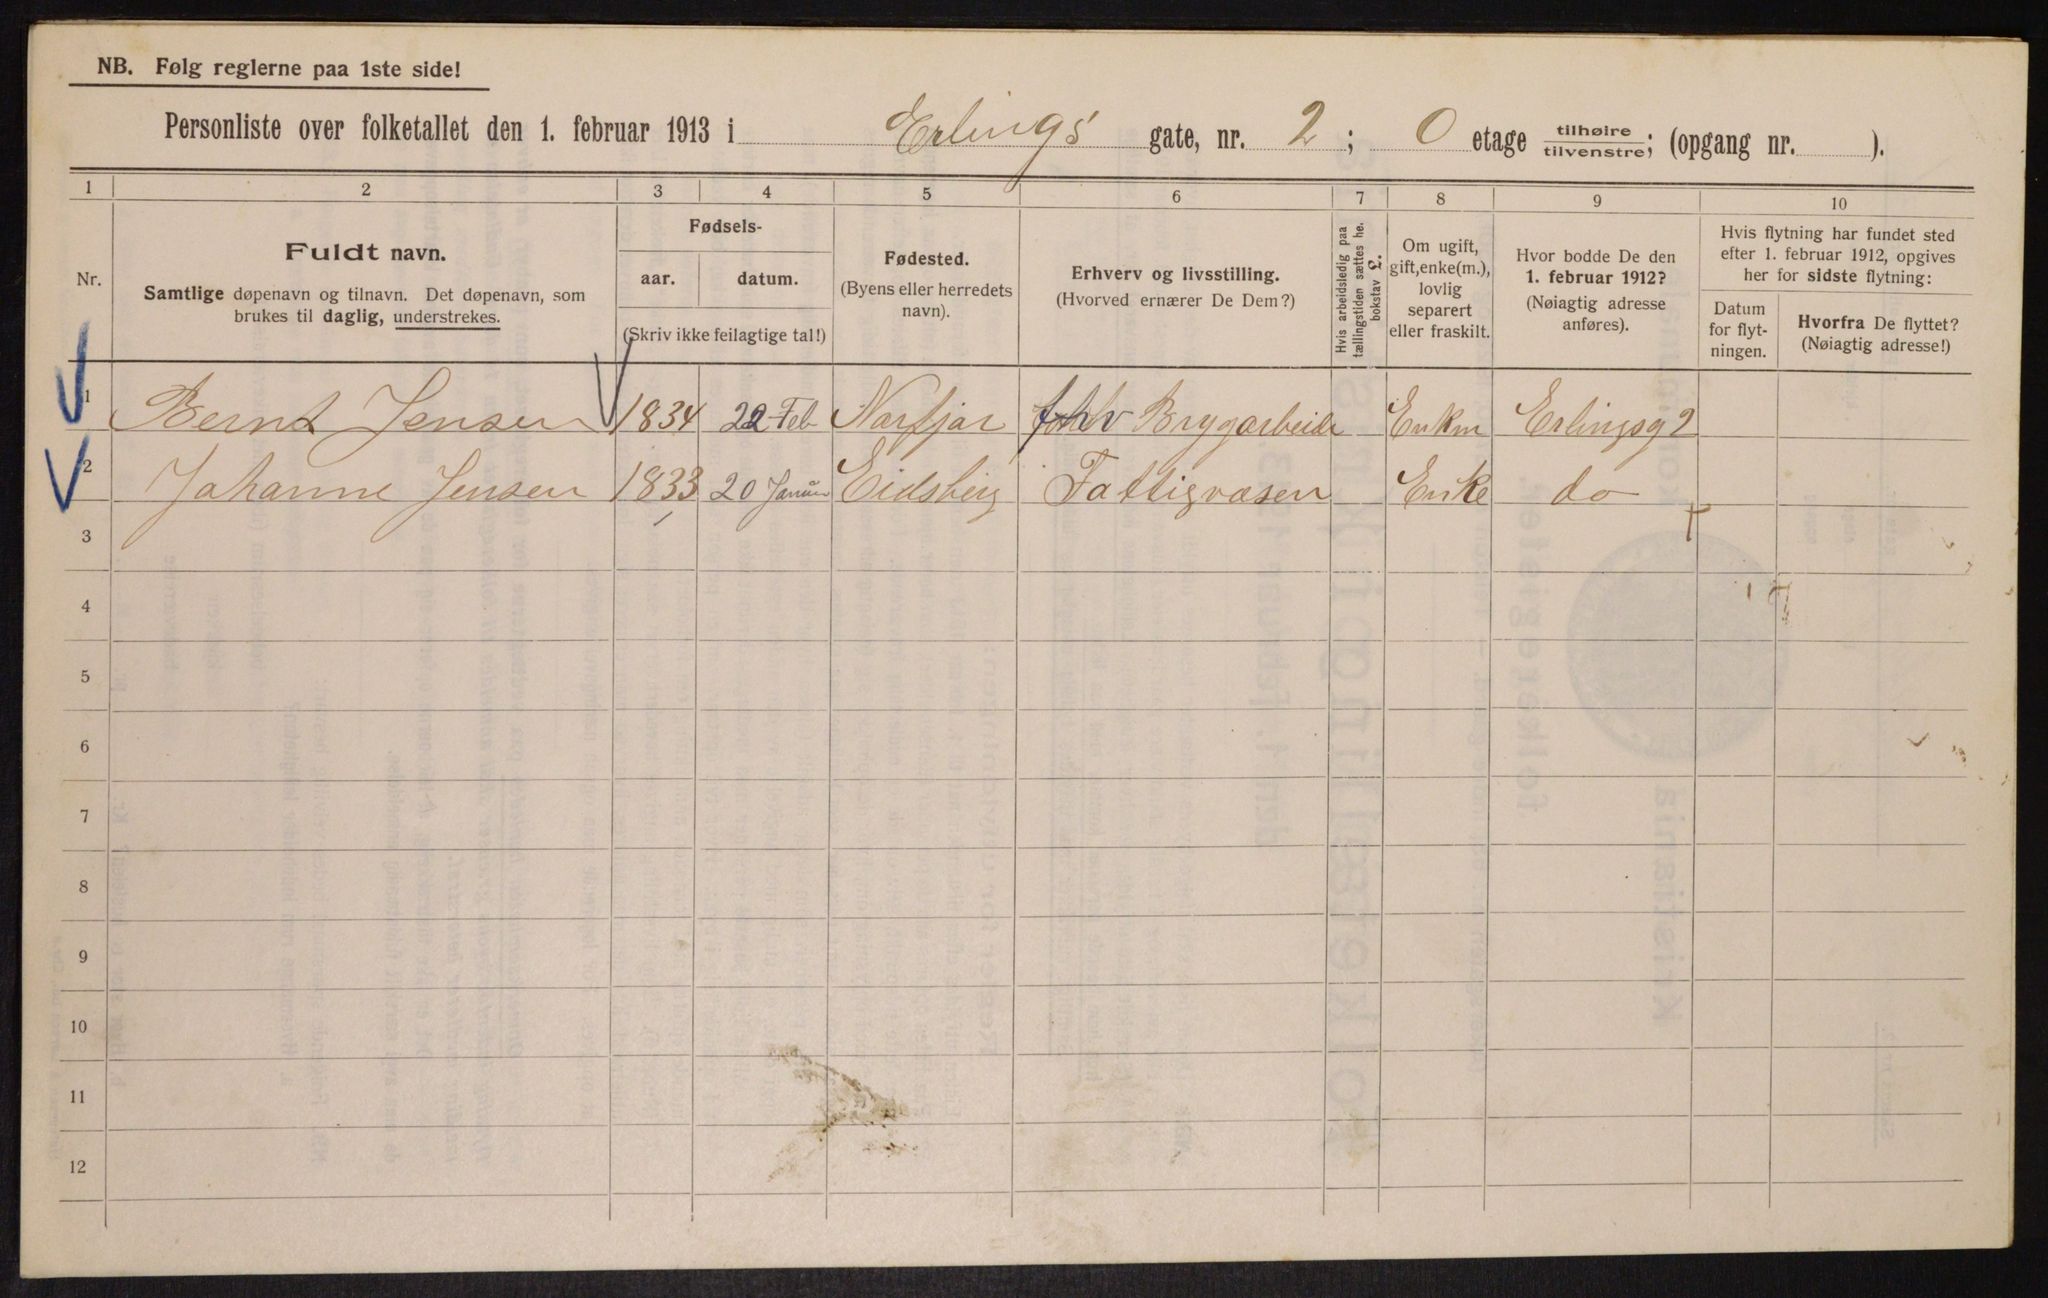 NB. Følg reglerne paa 1ste side!
Personliste over folketallet den 1. februar 1913 i Erlings gate, nr. 2; 0 etage tilhøire/tilvenstre; (opgang nr. ).
1 2 3 4 5 6 7 8 9 10
Nr.
Fuldt navn.
Samtlige døpenavn og tilnavn. Det døpenavn, som
brukes til daglig, understrekes.
Fødsels-
aar. datum.
(Skriv ikke feilagtige tal!)
Fødested.
(Byens eller herredets
navn).
Erhverv og livsstilling.
(Hvorved ernærer De Dem?)
Hvis arbeidsledig paa
tællingstiden sættes he.
bokstav L.
Om ugift,
gift, enke(m.),
lovlig
separert
eller fraskilt.
Hvor bodde De den
1. februar 1912?
(Nøiagtig adresse
anføres).
Hvis flytning har fundet sted
efter 1. februar 1912, opgives
her for sidste flytning:
Datum
for flyt-
ningen.
Hvorfra De flyttet?
(Nøiagtig adresse!)
1 Bernt Jensen 1834 22 Feb Norfjor Brygarbeide Enkm Erlingsg 2
2 Johanne Jensen 1833 20 Januar Eidsberg Fattigvæsen Enke do
3
4
5
6
7
8
9
10
11
12